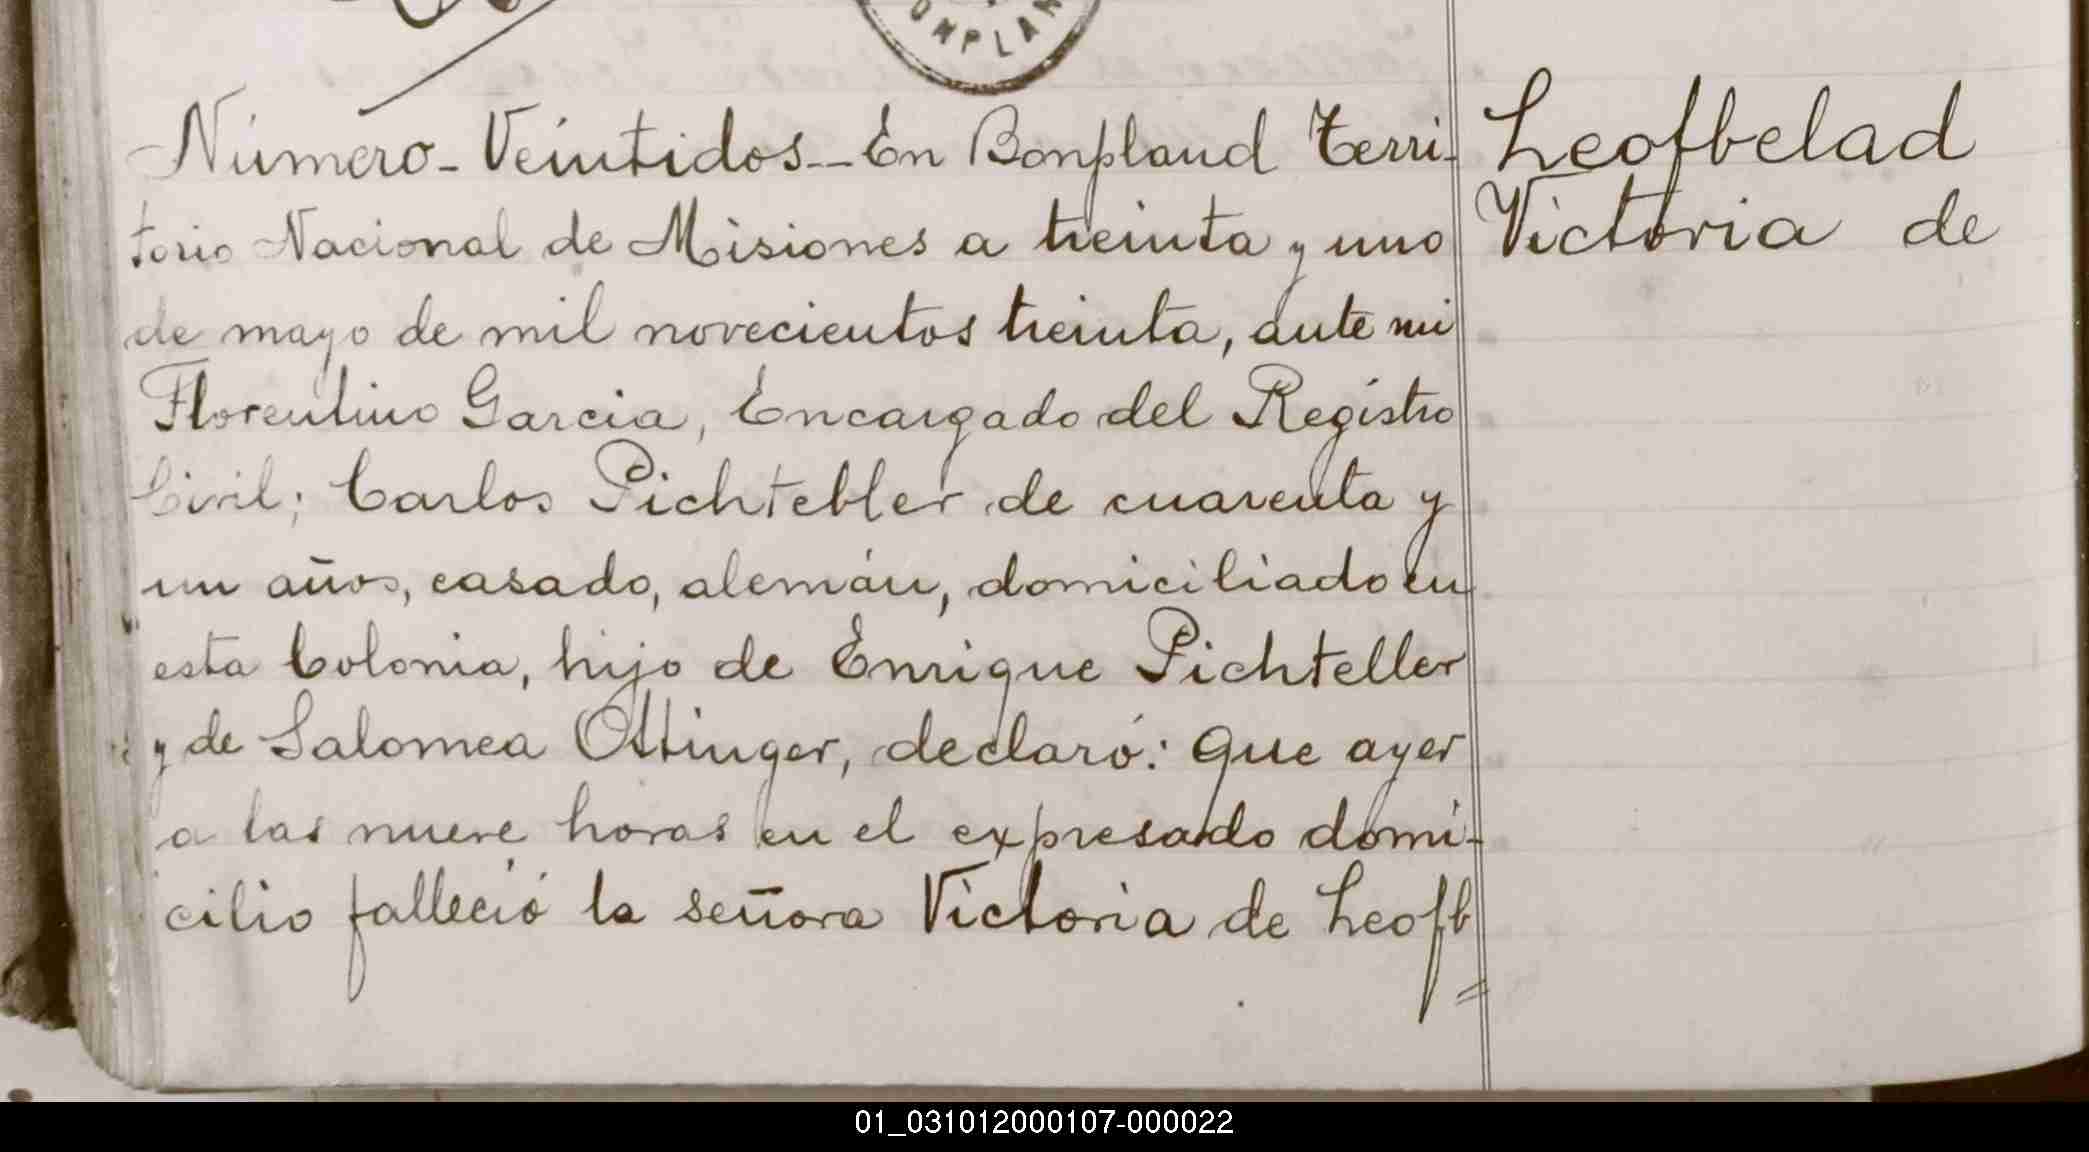 ONPLAN
Número - Veintidos -- En Bonpland Terri-
torio Nacional de Misiones a treinta y uno
de mayo de mil novecientos treinta, ante mi
Florentino Garcia, Encargado del Registro
Civil; Carlos Pichtebler de cuarenta y
un años, casado, alemán, domiciliado en
esta Colonia, hijo de Enrique Pichteller
y de Salomea Ottinger, declaró: que ayer
a las nueve horas en el expresado domi-
cilio falleció la señora Victoria de Leofb
=
Leofbelad
Victoria de
01_031012000107-000022